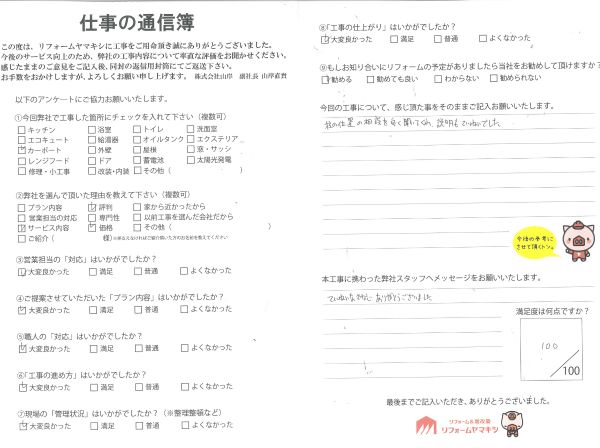 仕事の通信簿
この度は、リフォームヤマキシに工事をご用命頂き誠にありがとうございました。
今後のサービス向上のため、弊社の工事内容について率直な評価をお聞かせください。
感じたままのご意見をご記入後、同封の返信用封筒にてご返送下さい。
お手数をおかけしますが、よろしくお願い申し上げます。 株式会社山岸 副社長 山岸直賢
以下のアンケートにご協力お願いいたします。
①今回弊社で工事した箇所にチェックを入れて下さい（複数可）
□キッチン □浴室 □トイレ □洗面室
□エコキュート □給湯器 □オイルタンク □エクステリア
☑カーポート □外壁 □屋根 □窓・サッシ
□レンジフード □ドア □蓄電池 □太陽光発電
□修理・小工事 □改装・内装 □その他（ ）
②弊社を選んで頂いた理由を教えて下さい（複数可）
□プラン内容 ☑評判 □家から近かったから
□営業担当の対応 □専門性 □以前工事を選んだ会社だから
☑サービス内容 ☑価格 □その他（ ）
□ご紹介（ 様）※差支えなければご紹介頂いた方のお名前を教えてください
③営業担当の「対応」はいかがでしたか？
☑大変良かった □満足 □普通 □よくなかった
④ご提案させていただいた「プラン内容」はいかがでしたか？
☑大変良かった □満足 □普通 □よくなかった
⑤職人の「対応」はいかがでしたか？
☑大変良かった □満足 □普通 □よくなかった
⑥「工事の進め方」はいかがでしたか？
☑大変良かった □満足 □普通 □よくなかった
⑦現場の「管理状況」はいかがでしたか？（※整理整頓など）
☑大変良かった □満足 □普通 □よくなかった
⑧「工事の仕上がり」はいかがでしたか？
☑大変良かった □満足 □普通 □よくなかった
⑨もしお知り合いにリフォームの予定がありましたら当社をお勧めして頂けますか？
☑勧める □勧めても良い □わからない □勧められない
今回の工事について、感じ頂た事をそのままご記入お願いいたします。
の位置の相談を良く聞いてくれ 説明もていねいでした
今後の参考に
させて頂くトン。
本工事に携わった弊社スタッフへメッセージをお願いいたします。
ていねいな対応 ありがとうございました
満足度は何点ですか？
100
/100
最後までご記入いただき、ありがとうございました。
リフォーム&増改築
リフォームヤマキシ